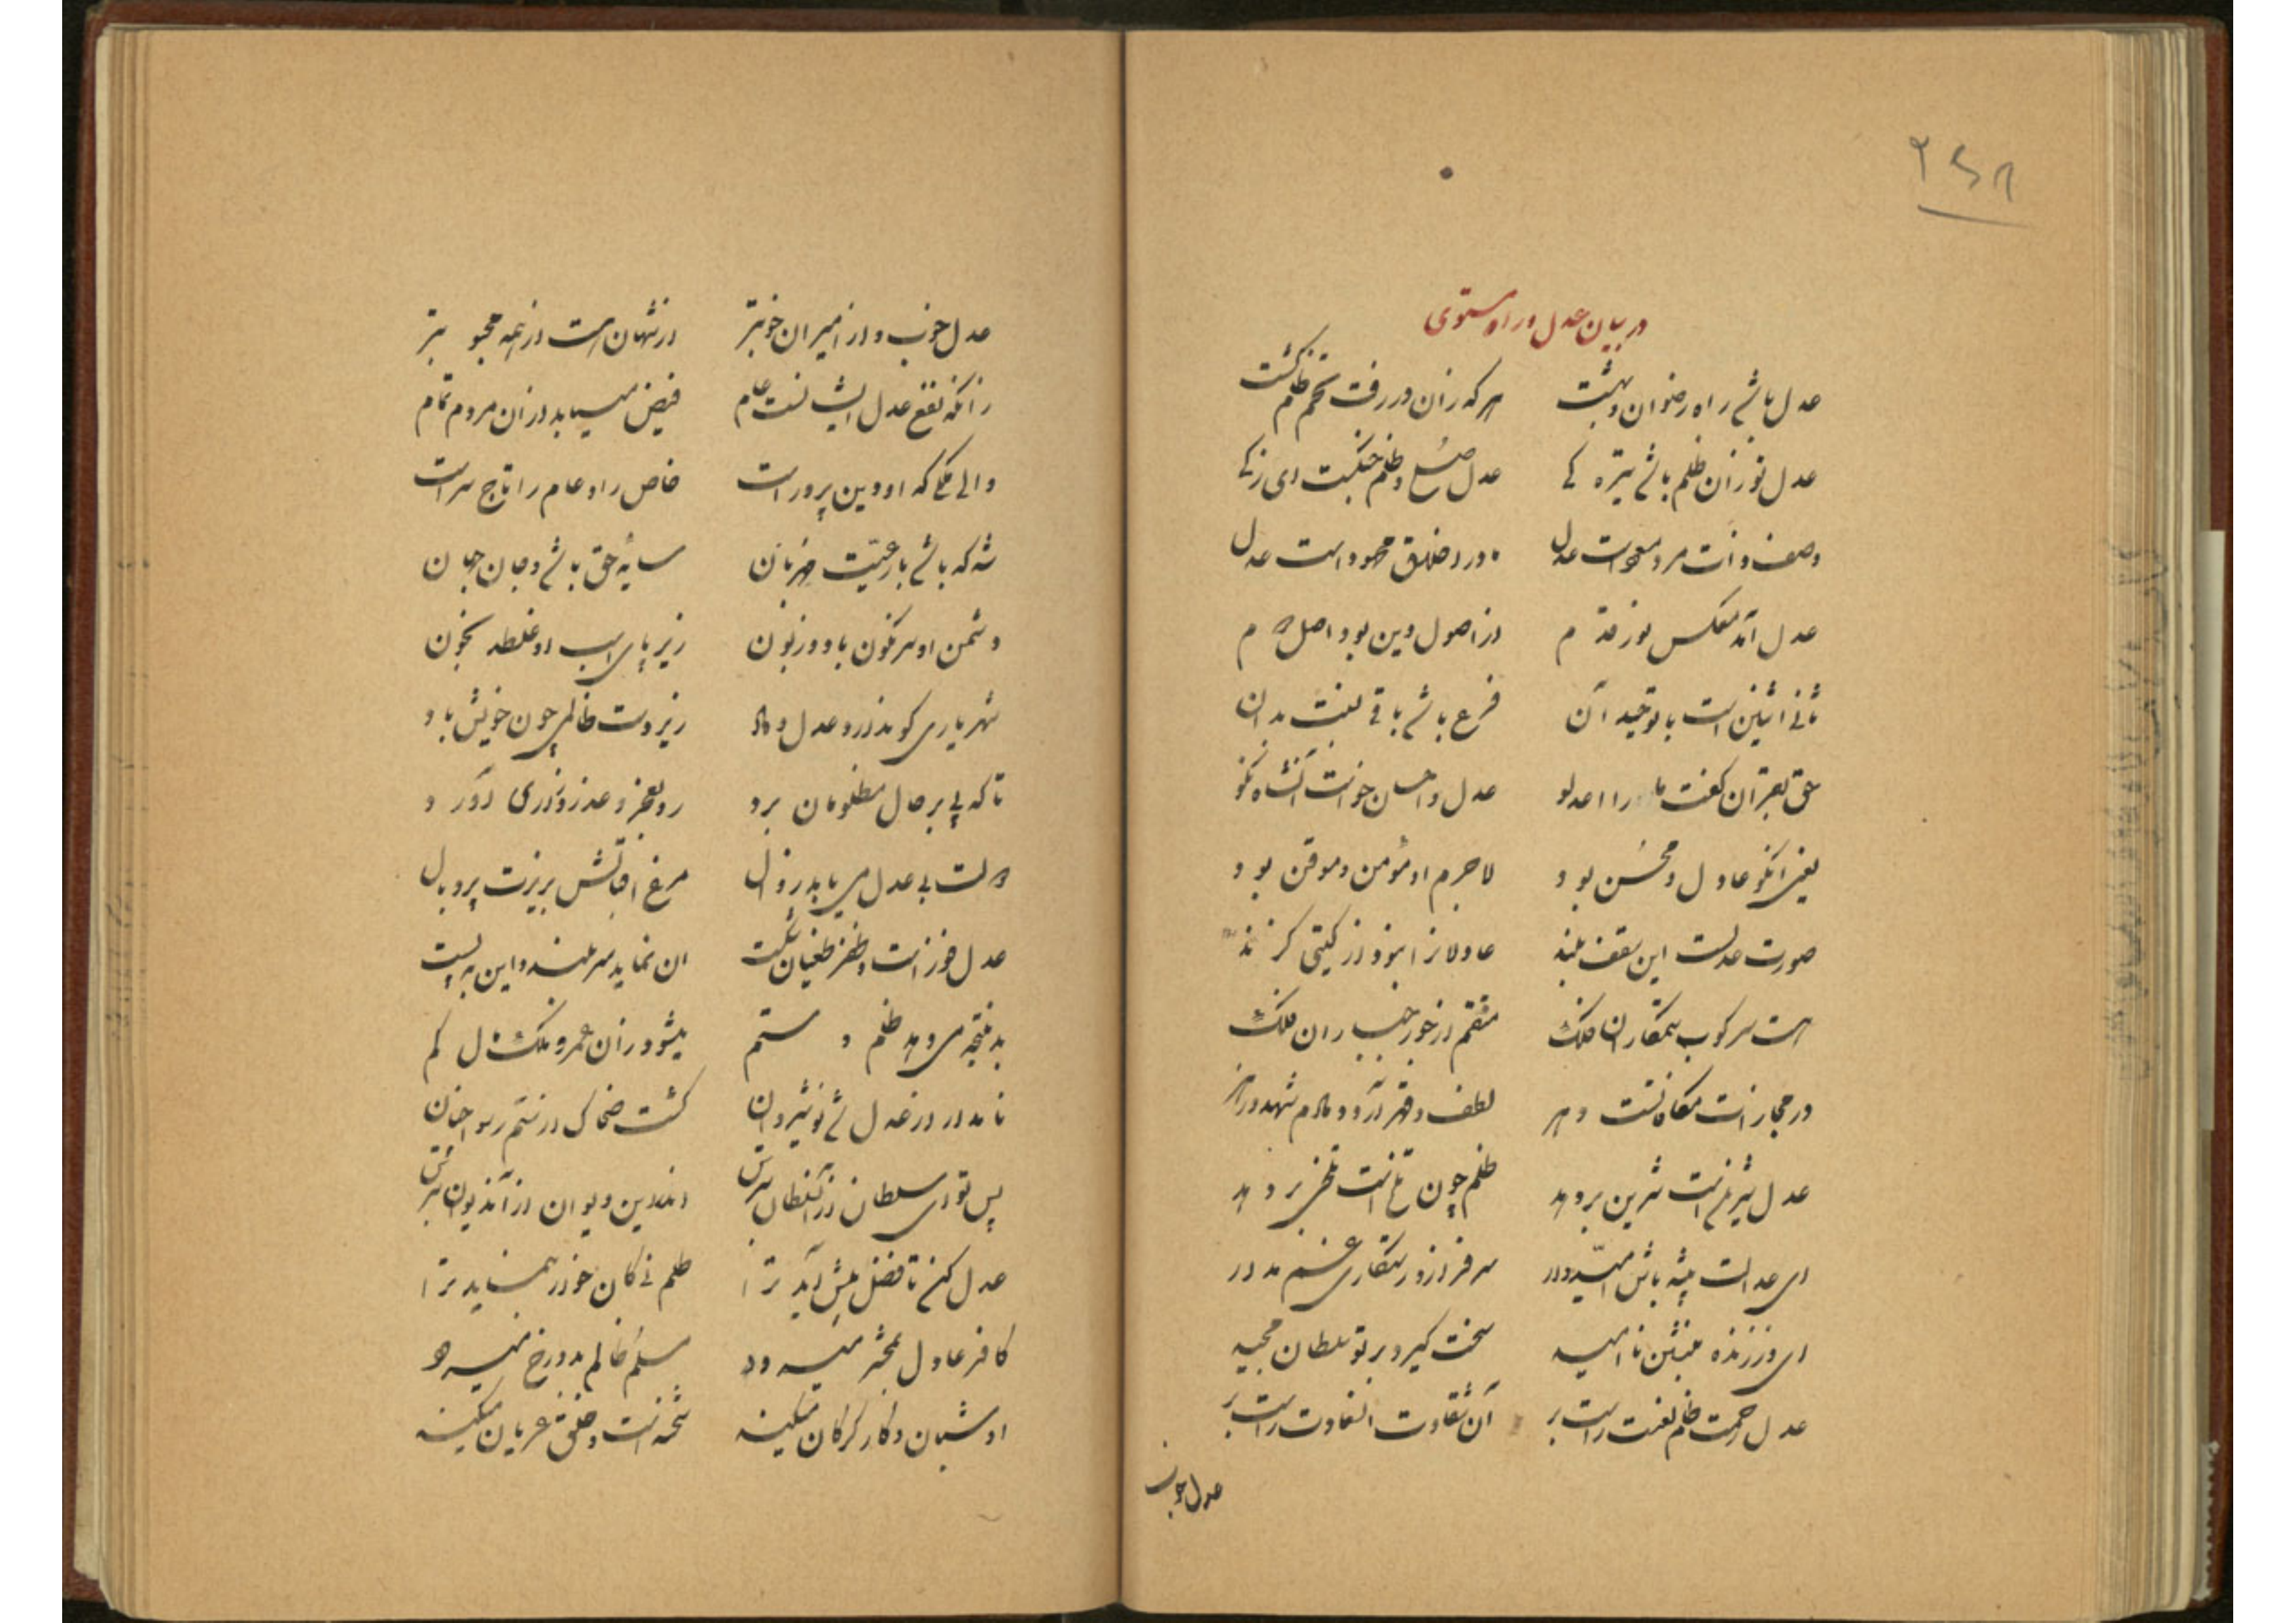 ۲۴۸
در بیان عدل و راه مستوی
عدل باشد راه رضوان و بهشت هر که زان در رفت تخم ظلم کشت
عدل نور زان ظلم باشد تیره کی عدل صلح و ظلم جنگست ای زکی
وصف ذات مرد مسعود است عدل در خلایق محمود است عدل
عدل آمد عکس نور قدم از اصول دین بود اصل
ثانی اثنین است با توحید آن فرع باشد باقی ملت بدان
حق بقرآن گفت ما را اعدلو عدل و احسان خواست آنشاه نکو
یعنی آنکو عادل و محسن بود لاجرم او مؤمن و موقن بود
صورت عدلست این سقف بلند عادلانرا نبود از گیتی گزند
هست سرکوب ستمکاران فلک منتقم از جور جباران فلک
در مجازات مکافاتست دهر لطف و قهر آرد دمادم شهد و زهر
عدل شیرینست شیرین بر دهد ظلم چون تلخ است تلخی بر دهد
ای عدالت پیشه باش امیدوار سرفراز و رستگاری غم مدار
ای درنده بنشین نا امید سخت گیرد بر تو سلطان مجید
عدل رحمت ظلم لعنت راست بر آن شقاوت این سعادت راست بر
عدل خوب
عدل خوب و از امیران خوبتر از شهان است از همه محبوبتر
زانکه نفع عدل ایشانست عام فیض مییابد از آن مردم تمام
والی ملکی که او دین پرور است خاص را و عام را تاج سر است
شه که باشد با رعیت مهربان سایه حق باشد و جان جهان
دشمن او سرنگون باد و زبون زیر پای اسب او غلطد بخون
شهریاری کو ندارد عدل و داد زیر دست ظالمی چون خویش باد
تا که پی بر حال مظلومان برد رو بعجز و عذر و زاری آورد
دولت بی عدل می یابد زوال مرغ اقبالش بریزد پر و بال
عدل فوز است و ظفر طغیان شکست آن نماید سر بلند و این به پست
بد نتیجه می دهد ظلم و ستم میشود زان عمر و ملک و مال کم
نامدار از عدل شد نوشیروان گشت ضحاک از ستم رسوا جهان
پس تو ای سلطان از آنسلطان بترس اندرین دیوان از آندیوان بترس
عدل کن تا فضل پیش آید ترا ظلم نی کان خوار بنماید ترا
کافر عادل بمحشر میرود مسلم ظالم بدوزخ میرود
او شبان و کار گرگان میکند شحنه است و خلق عریان میکند